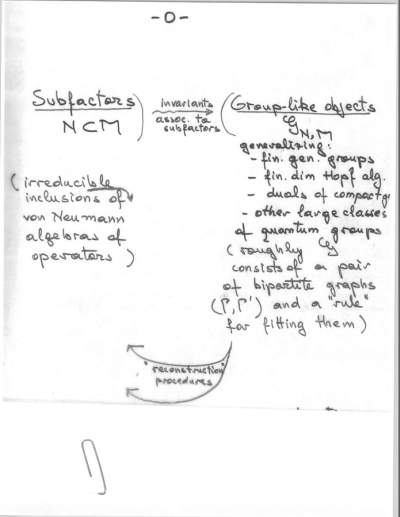 -0-
Subfactors
N⊂M
invariants
assoc. to
subfactors
Group-like objects
𝒢 N,M
generalizing:
- fin. gen. groups
- fin. dim Hopf alg.
- duals of compact g
- other large classes
of quantum groups
(roughly 𝒢
consists of a pair
of bipartite graphs
(Γ, Γ') and a "rule"
for fitting them)
(irreducible
inclusions of
von Neumann
algebras of
operators)
"reconstruction"
procedures